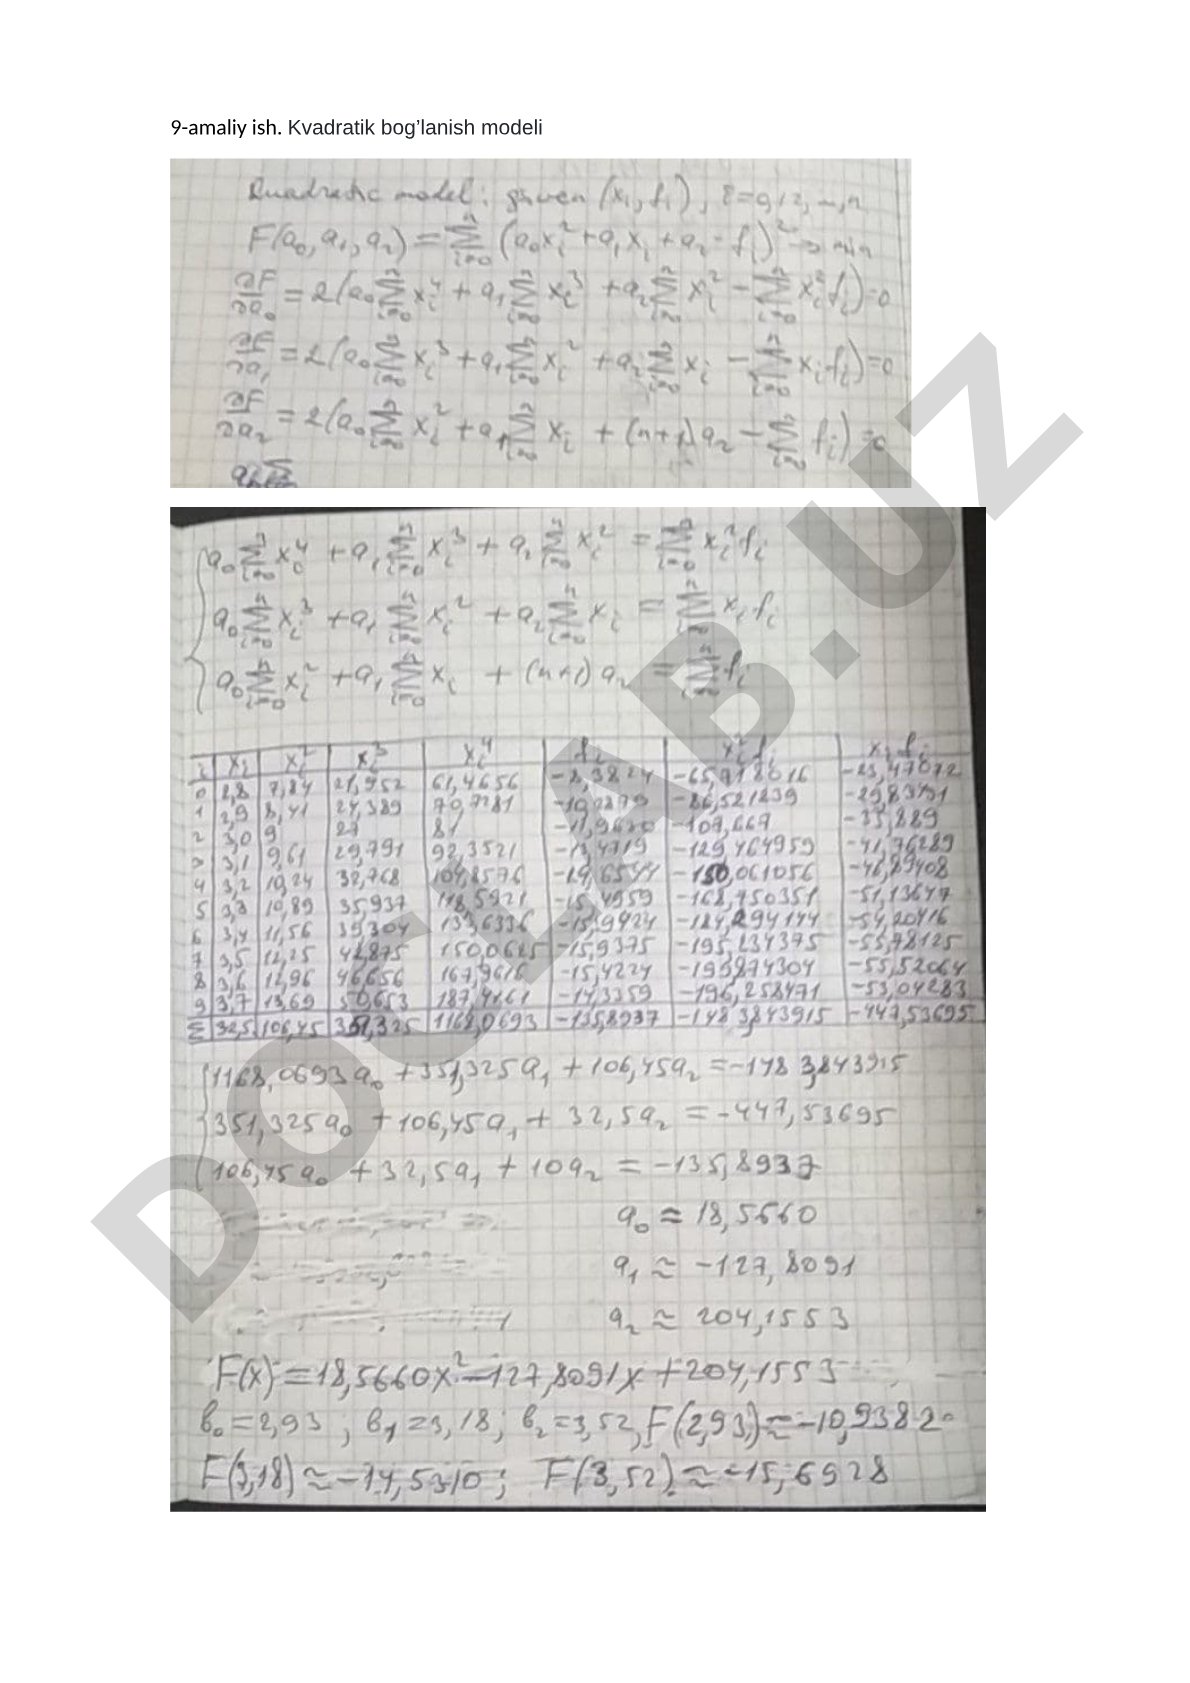 9-amaliy ish. Kvadratik bog’lanish modeli
Quadratic model: given (xᵢ, fᵢ), i=0,1,2,...,n
F(a₀, a₁, a₂) = Σⁿᵢ₌₀ (a₀xᵢ² + a₁xᵢ + a₂ - fᵢ)² → min
∂F/∂a₀ = 2(a₀ Σⁿᵢ₌₀ xᵢ⁴ + a₁ Σⁿᵢ₌₀ xᵢ³ + a₂ Σⁿᵢ₌₀ xᵢ² - Σⁿᵢ₌₀ xᵢ²fᵢ) = 0
∂F/∂a₁ = 2(a₀ Σⁿᵢ₌₀ xᵢ³ + a₁ Σⁿᵢ₌₀ xᵢ² + a₂ Σⁿᵢ₌₀ xᵢ - Σⁿᵢ₌₀ xᵢfᵢ) = 0
∂F/∂a₂ = 2(a₀ Σⁿᵢ₌₀ xᵢ² + a₁ Σⁿᵢ₌₀ xᵢ + (n+1)a₂ - Σⁿᵢ₌₀ fᵢ) = 0
a₀ Σⁿᵢ₌₀ xᵢ⁴ + a₁ Σⁿᵢ₌₀ xᵢ³ + a₂ Σⁿᵢ₌₀ xᵢ² = Σⁿᵢ₌₀ xᵢ²fᵢ
a₀ Σⁿᵢ₌₀ xᵢ³ + a₁ Σⁿᵢ₌₀ xᵢ² + a₂ Σⁿᵢ₌₀ xᵢ = Σⁿᵢ₌₀ xᵢfᵢ
a₀ Σⁿᵢ₌₀ xᵢ² + a₁ Σⁿᵢ₌₀ xᵢ + (n+1)a₂ = Σⁿᵢ₌₀ fᵢ
i xᵢ xᵢ² xᵢ³ xᵢ⁴ fᵢ xᵢ²fᵢ xᵢfᵢ
0 2,8 7,84 21,952 61,4656 -8,3824 -65,718016 -23,47072
1 2,9 8,41 24,389 70,7281 -10,2879 -86,521239 -29,83491
2 3,0 9 27 81 -11,9630 -107,667 -35,889
3 3,1 9,61 29,791 92,3521 -13,4719 -129,464959 -41,76289
4 3,2 10,24 32,768 104,8576 -14,6544 -150,061056 -46,89408
5 3,3 10,89 35,937 118,5921 -15,4959 -168,750351 -51,13647
6 3,4 11,56 39,304 133,6336 -15,9424 -184,294144 -54,20416
7 3,5 12,25 42,875 150,0625 -15,9375 -195,234375 -55,78125
8 3,6 12,96 46,656 167,9616 -15,4224 -199,874304 -55,52064
9 3,7 13,69 50,653 187,4161 -14,3359 -196,258471 -53,04283
Σ 32,5 106,45 351,325 1168,0693 -135,8937 -1483,843915 -447,53695
1168,0693a₀ + 351,325a₁ + 106,45a₂ = -1483,843915
351,325a₀ + 106,45a₁ + 32,5a₂ = -447,53695
106,45a₀ + 32,5a₁ + 10a₂ = -135,8937
a₀ ≈ 18,5660
a₁ ≈ -127,8091
a₂ ≈ 204,1553
F(x) = 18,5660x² - 127,8091x + 204,1553
b₀=2,93; b₁=3,18; b₂=3,52, F(2,93) ≈ -10,9382
F(3,18) ≈ -14,5310; F(3,52) ≈ -15,6928
DOCLAB.UZ